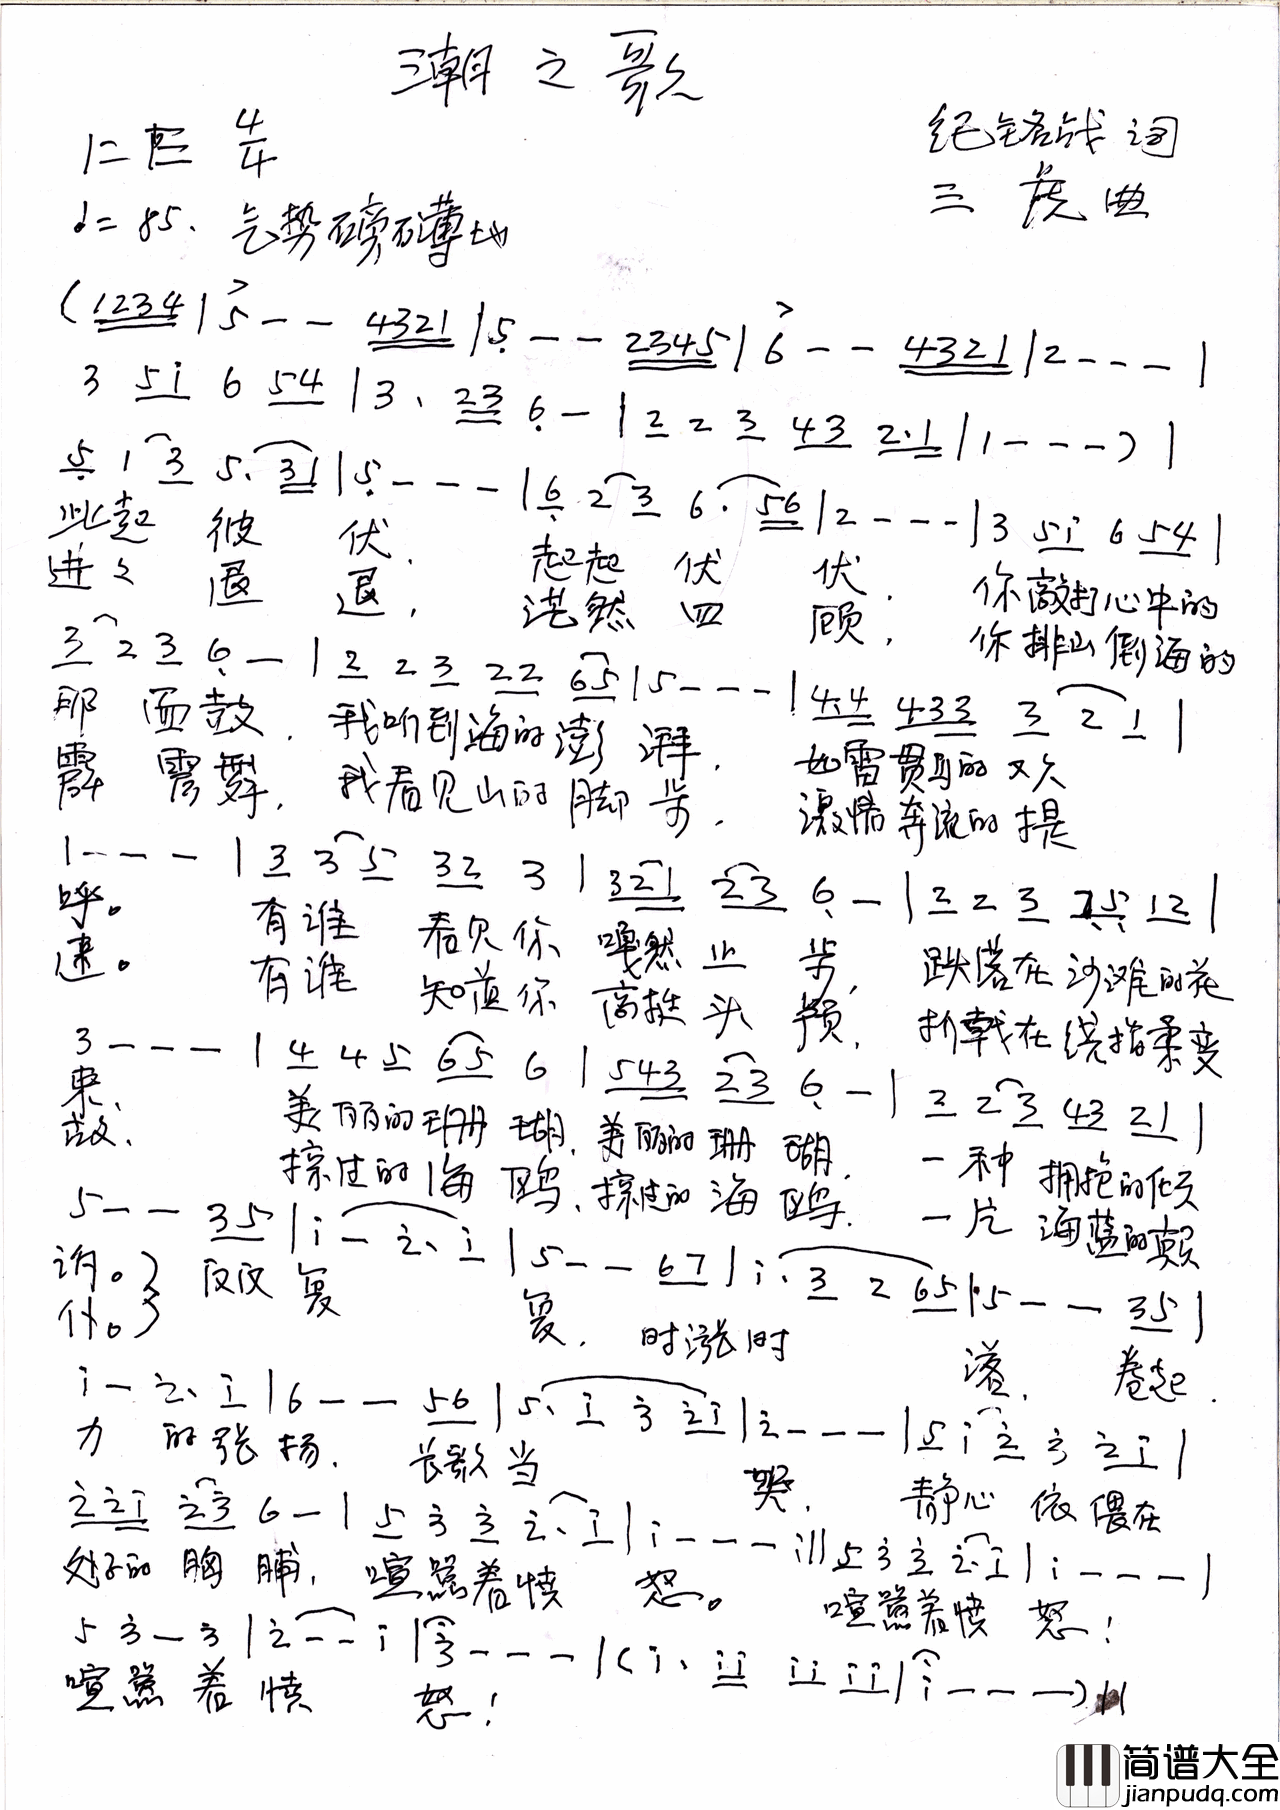 潮之歌
1=E 4/4
纪铭战词
♩=85. 气势磅礴地
三虎曲
(1234|5 - - 4321|5 - - 2345|6 - - 4321|2 - - - |
3 5i 6 54|3. 23 6 - |2 2 3 43 2.1|1 - - - )|
5 1 3 5. 31|5 - - - |6 2 3 6. 56|2 - - - |3 5i 6 54|
此起 彼 伏. 起起 伏 伏. 你敲打心中的
进々 退 退, 茫然 四 顾, 你排山倒海的
3 2 3 6 - |2 2 3 22 65|5 - - - |4.4 433 3 2 1|
那 面鼓. 我听到海的澎 湃. 如雷贯耳的欢
霹 雳舞, 我看见山的脚 步. 激情奔流的提
1 - - - |3 3 5 32 3|321 23 6 - |2 2 3 25 12|
呼。 有谁 看见你 嘎然 止 步, 跌落在沙滩的花
速。 有谁 知道你 高挺 头 颅, 折戟在绕指柔变
3 - - - |4 4 5 65 6|543 23 6 - |2 2 3 43 21|
束, 美丽的珊 瑚, 美丽的珊 瑚. 一种 拥抱的倾
故. 掠过的海 鸥, 掠过的海 鸥. 一片 海蓝的
5 - - 35|i - 2. i|5 - - 67|i. 3 2 65|5 - - 35|
诉。} 反反 复 复. 时涨时 落, 卷起.
仆。}
i - 2. i|6 - - 56|5. i 3 2i|2 - - - |5 i 2 3 2i|
力 的张 扬. 长歌 当 哭. 静心 依 偎在
22i 23 6 - |5 3 3 2. i|i - - - :||5 3 3 2. i|i - - - |
处子的 胸 脯, 喧嚣着愤 怒。 喧嚣着愤 怒!
5 3 - 3|2 - - i|3 - - - |(i. ii ii ii|i - - - )||
喧嚣 着 愤 怒!
简谱大全
jianpudq.com